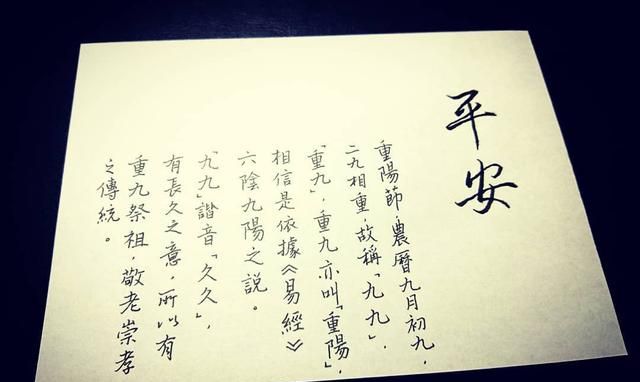 平安
重陽節，農曆九月初九，
二九相重，故稱「九九」，
「重九」，重九亦叫「重陽」，
相信是依據《易經》
六陰九陽之說。
「九九」諧音「久久」，
有長久之意，所以有
重九祭祖，敬老崇孝
之傳統。